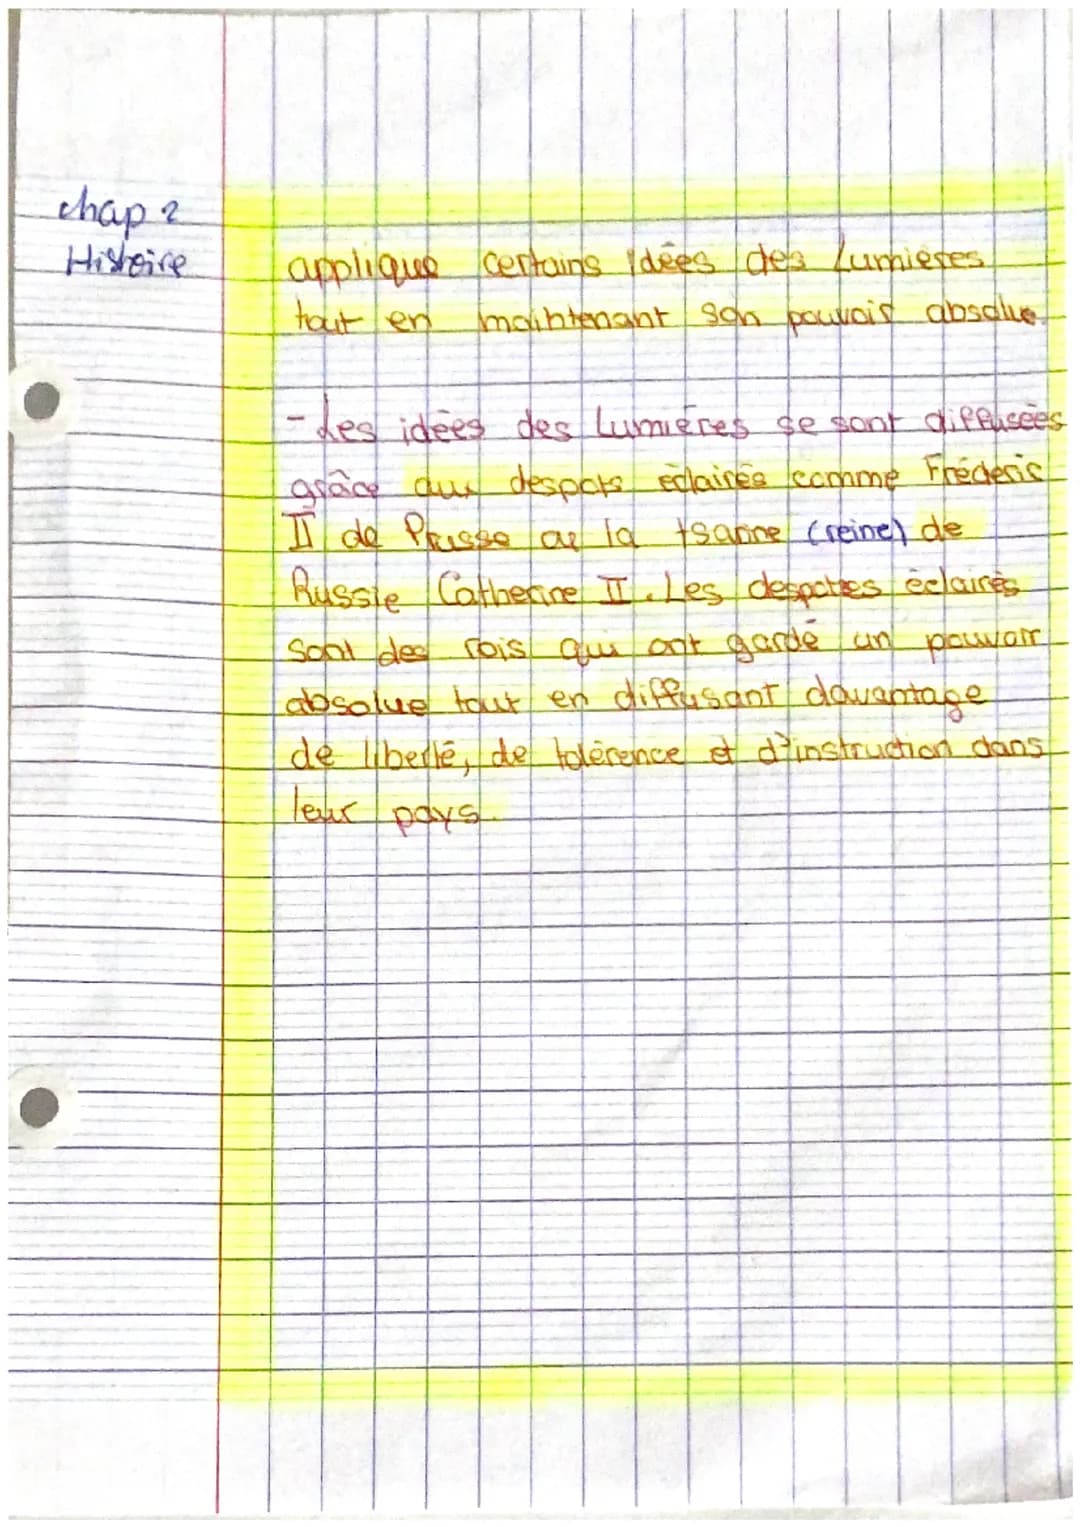 chap 2
Histoire
applique certains idées des Lumières
tout en maintenant son pouvoir absolue.
- Les idées des Lumières se sont diffusées
grâce aux despots éclairés comme Fréderic
II de Prusse ou la tsarine (reine) de
Russie Catherine II. Les despotes éclairés
sont des rois qui ont gardé un pouvoir
absolue tout en diffusant davantage
de liberté, de tolérence et d'instruction dans
leur pays.